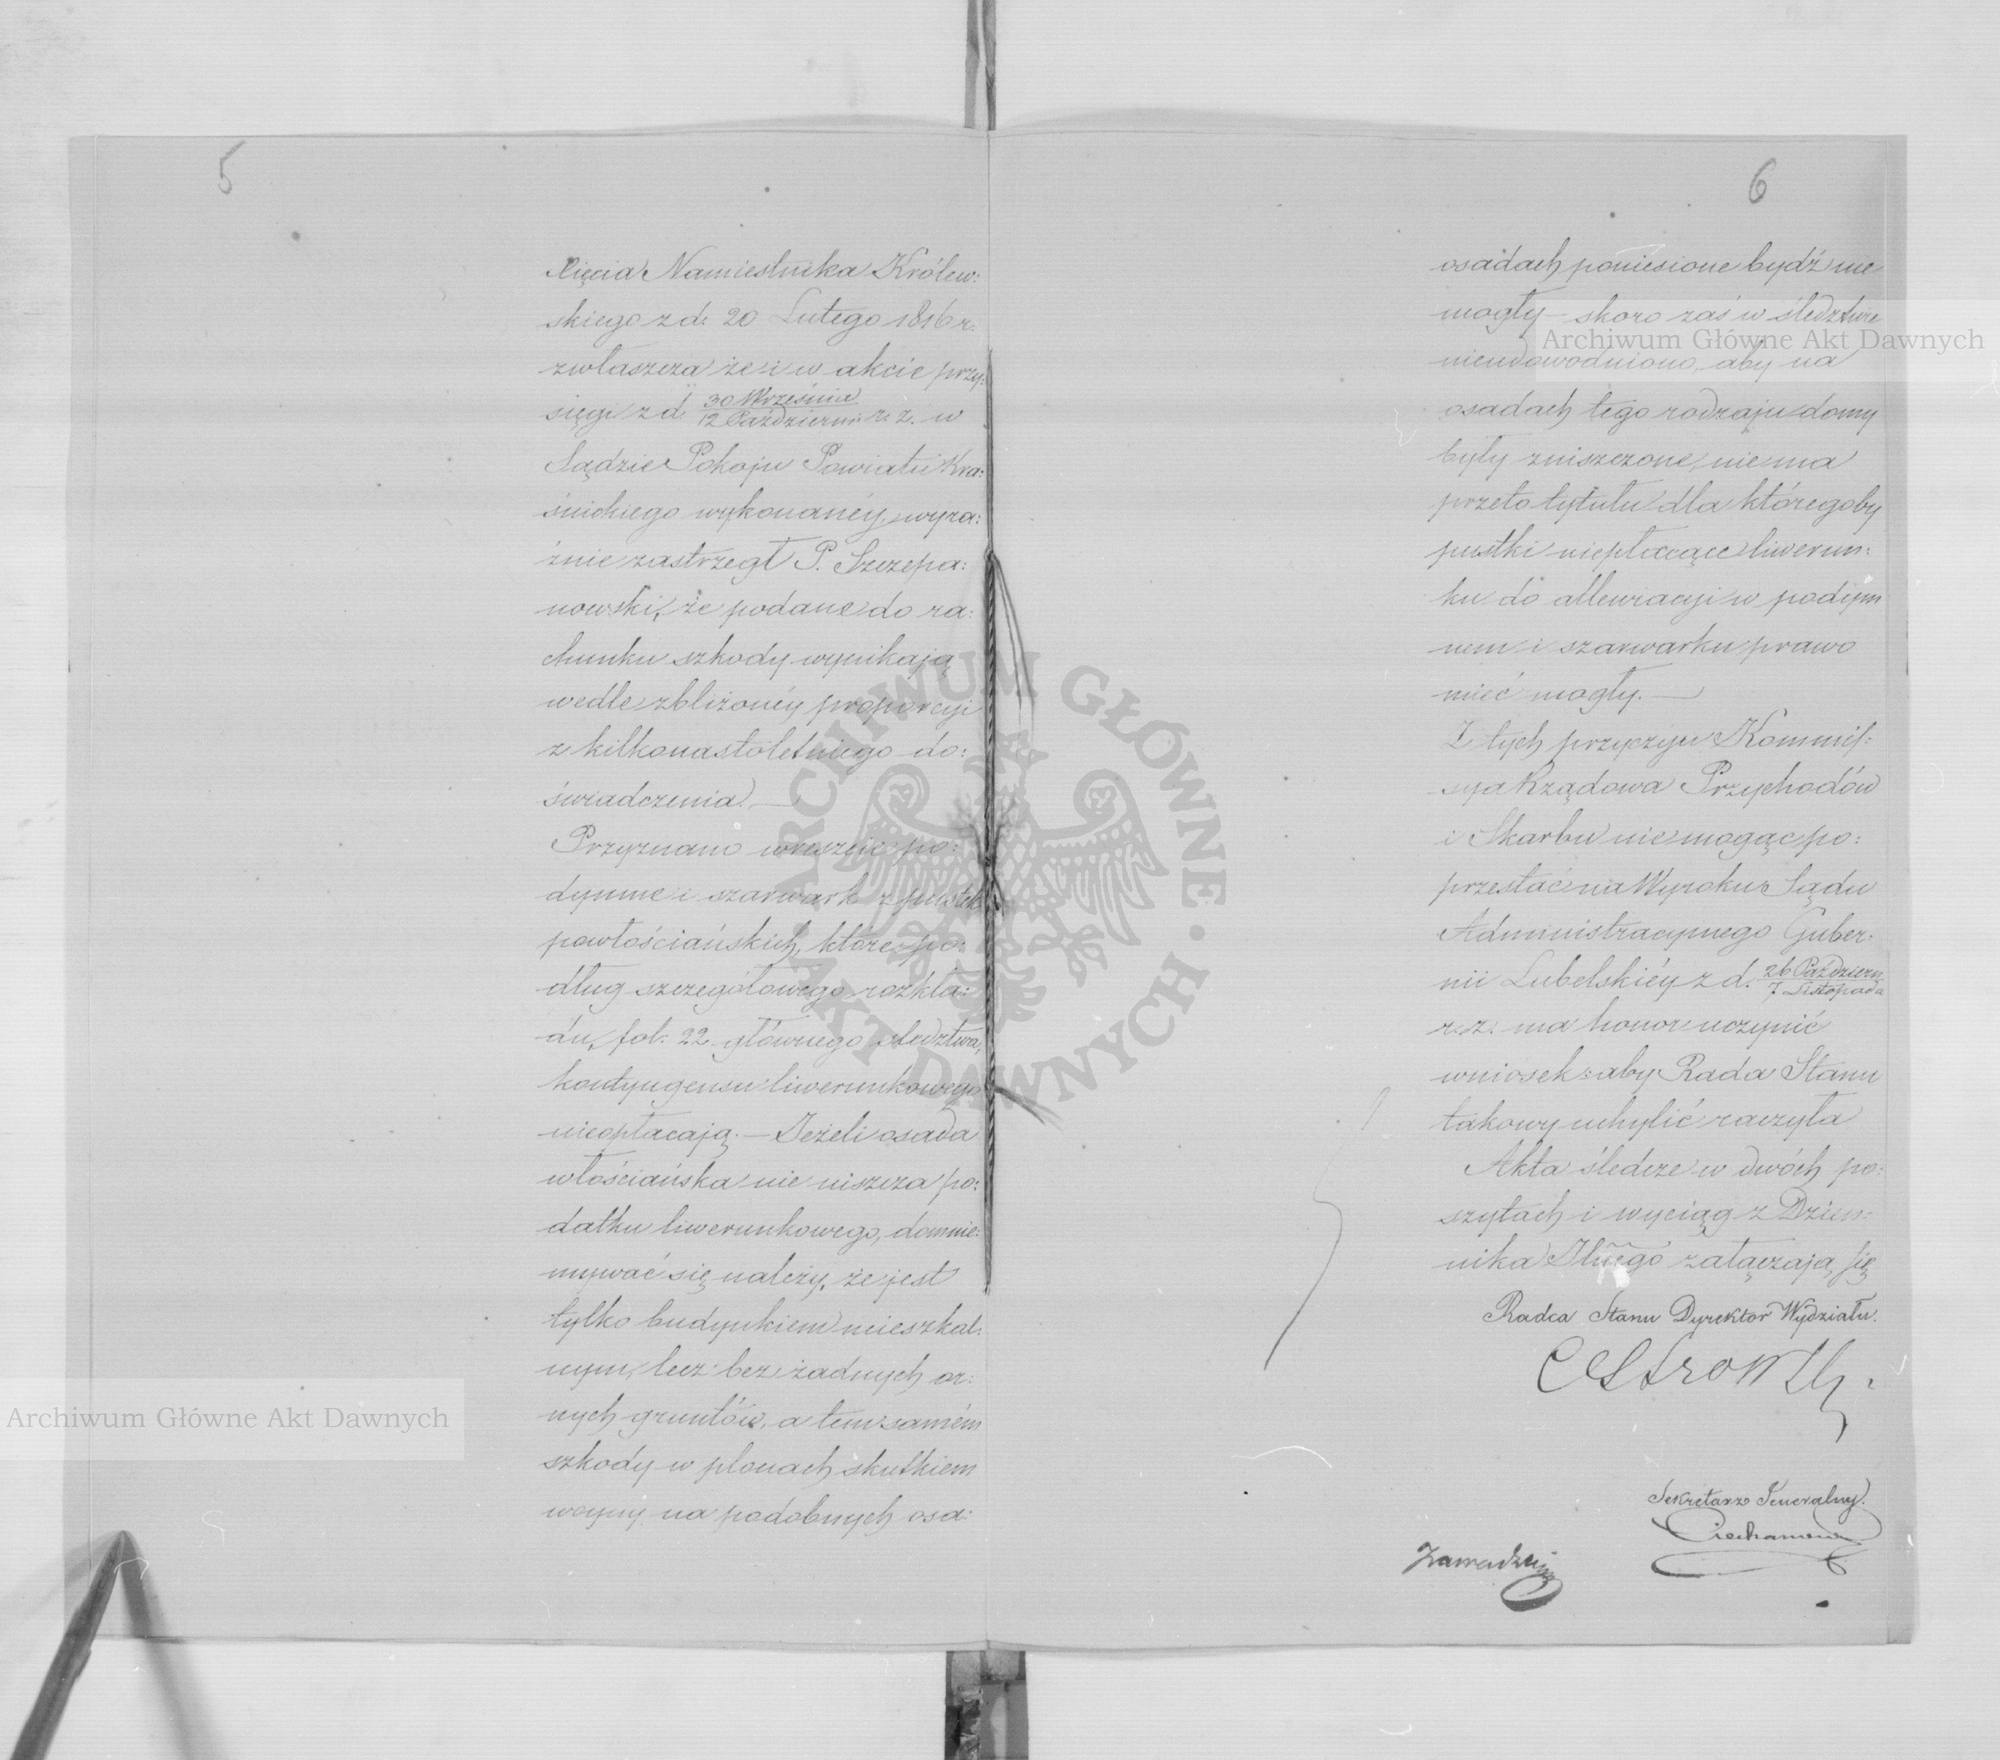 5
xięcia Namiestnika Królew:
skiego z d. 20 Lutego 1816 r.
zwłaszcza że i w akcie przy:
sięgi z d. 30 Września / 12 Październ: r. z. w
Sądzie Pokoju Powiatu Kra:
śnickiego wykonanéy, wyra:
źnie zastrzegł P. Szczepa:
nowski, że podane do ra:
chunku szkody wynikają
wedle zbliżonéy proporcyi
z kilkonastoletniego do:
świadczenia. —
Przyznano wreszcie po:
dymne i szarwark z pustek
powłościańskich, które po:
dług szczegółowego rozkła:
du, fol. 22 głównego śledztwa,
kontyngensu liwerunkowego
nieopłacają. — Jeżeli osada
włościańska nie uiszcza po:
datku liwerunkowego, domnie:
mywać się należy, że jest
tylko budynkiem mieszkal:
nym, lecz bez żadnych or:
nych gruntów, a tem samém
szkody w plonach skutkiem
woyny na podobnych osa:
6
osadach poniesione bydź nie
mogły — skoro zaś w śledztwie
nieudowodniono, aby na
osadach tego rodzaju domy
były zniszczone, nie ma
przeto tytułu dla któregoby
pustki niepłacące liwerun:
ku do allewiacyi w podym
nem i szarwarku prawo
mieć mogły. —
Z tych przyczyn Kommis:
sya Rządowa Przychodów
i Skarbu nie mogąc po:
przestać na Wyroku Sądu
Administracyinego Guber:
nii Lubelskiéy z d. 26 Październ. / 7 Listopada
r. z. ma honor uczynić
wniosek: aby Rada Stanu
takowy uchylić raczyła
Akta śledcze w dwóch po:
szytach i wyciąg z Dzien:
nika Głnego załączają się
Radca Stanu Dyrektor Wydziału.
Sekretarz Jeneralny.
Archiwum Główne Akt Dawnych
Archiwum Główne Akt Dawnych
ARCHIWUM GŁÓWNE · AKT DAWNYCH ·